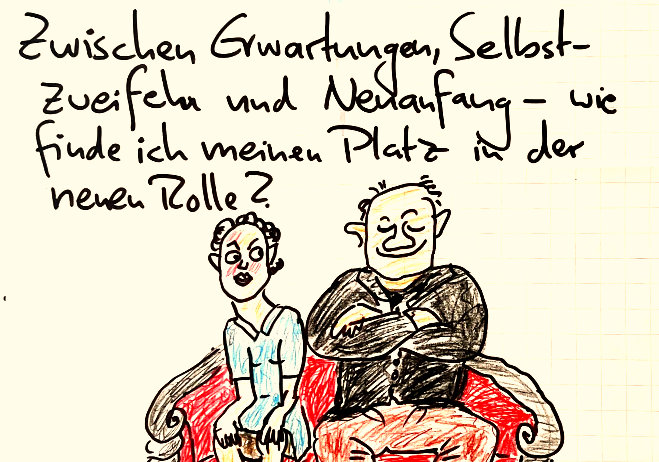 Zwischen Erwartungen, Selbst-
zweifeln und Neuanfang – wie
finde ich meinen Platz in der
neuen Rolle?